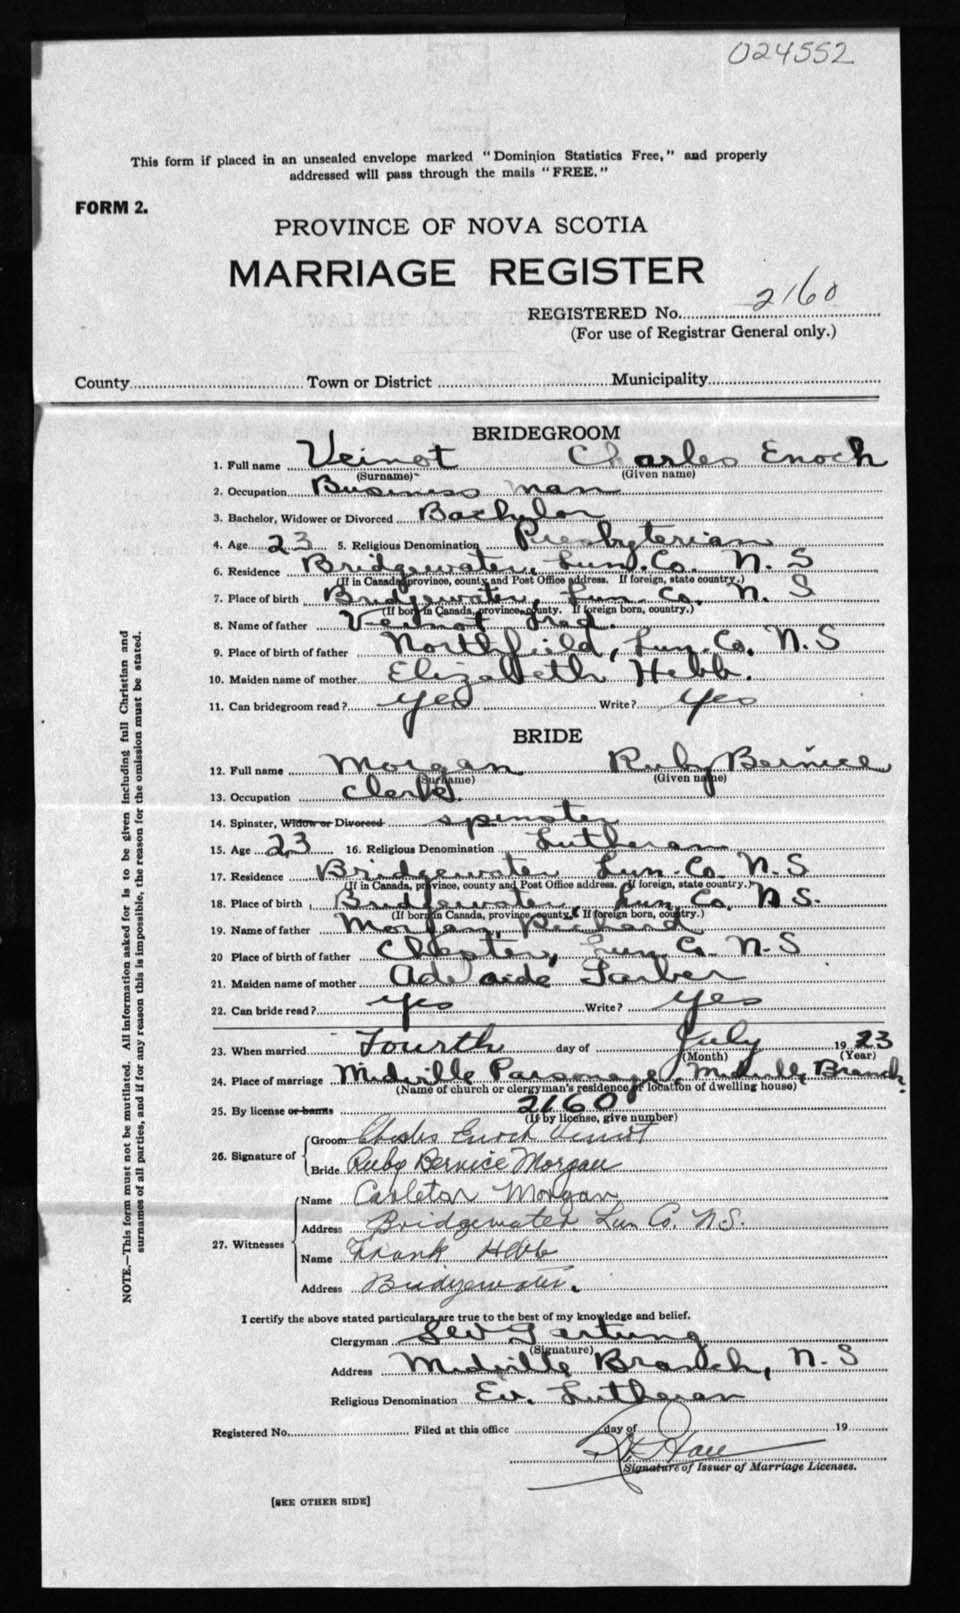 024552
This form if placed in an unsealed envelope marked "Dominion Statistics Free," and properly
addressed will pass through the mails "FREE."
FORM 2.
PROVINCE OF NOVA SCOTIA
MARRIAGE REGISTER
REGISTERED No. 2160
(For use of Registrar General only.)
County Town or District Municipality
BRIDEGROOM
1. Full name Veinot Charles Enoch
(Surname) (Given name)
2. Occupation Business man
3. Bachelor, Widower or Divorced Bachelor
4. Age 23 5. Religious Denomination Presbyterian
6. Residence Bridgewater, Lun. Co. N. S
(If in Canada, province, county and Post Office address. If foreign, state country.)
7. Place of birth Bridgewater, Lun. Co. N. S
(If born in Canada, province, county. If foreign born, country.)
8. Name of father Veinot Fred.
9. Place of birth of father Northfield, Lun. Co. N. S
10. Maiden name of mother Elizabeth Hebb.
11. Can bridegroom read? yes Write? yes
BRIDE
12. Full name Morgan Ruby Bernice
(Surname) (Given name)
13. Occupation Clerk.
14. Spinster, Widow or Divorced spinster
15. Age 23 16. Religious Denomination Lutheran
17. Residence Bridgewater Lun. Co. N. S
(If in Canada, province, county and Post Office address. If foreign, state country.)
18. Place of birth Bridgewater, Lun Co. N S.
(If born in Canada, province, county. If foreign born, country.)
19. Name of father Morgan, Richard
20 Place of birth of father Chester, Lun Co N. S
21. Maiden name of mother Adelaide Tarber
22. Can bride read? yes Write? yes
23. When married Fourth day of July 19 23
(Month) (Year)
24. Place of marriage Midville Parsonage, Midville Branch.
(Name of church or clergyman's residence or location of dwelling house)
25. By license or banns 2160
(If by license, give number)
26. Signature of Groom Charles Enoch Veinot
Bride Ruby Bernice Morgan
27. Witnesses Name Carleton Morgan
Address Bridgewater Lun Co. N.S.
Name Frank Hebb
Address Bridgewater.
I certify the above stated particulars are true to the best of my knowledge and belief.
Clergyman
(Signature)
Address Midville Branch, N. S
Religious Denomination Ev. Lutheran
Registered No. Filed at this office day of 19
Signature of Issuer of Marriage Licenses.
[SEE OTHER SIDE]
NOTE.—This form must not be mutilated. All information asked for is to be given including full Christian and
surnames of all parties, and if for any reason this is impossible, the reason for the omission must be stated.